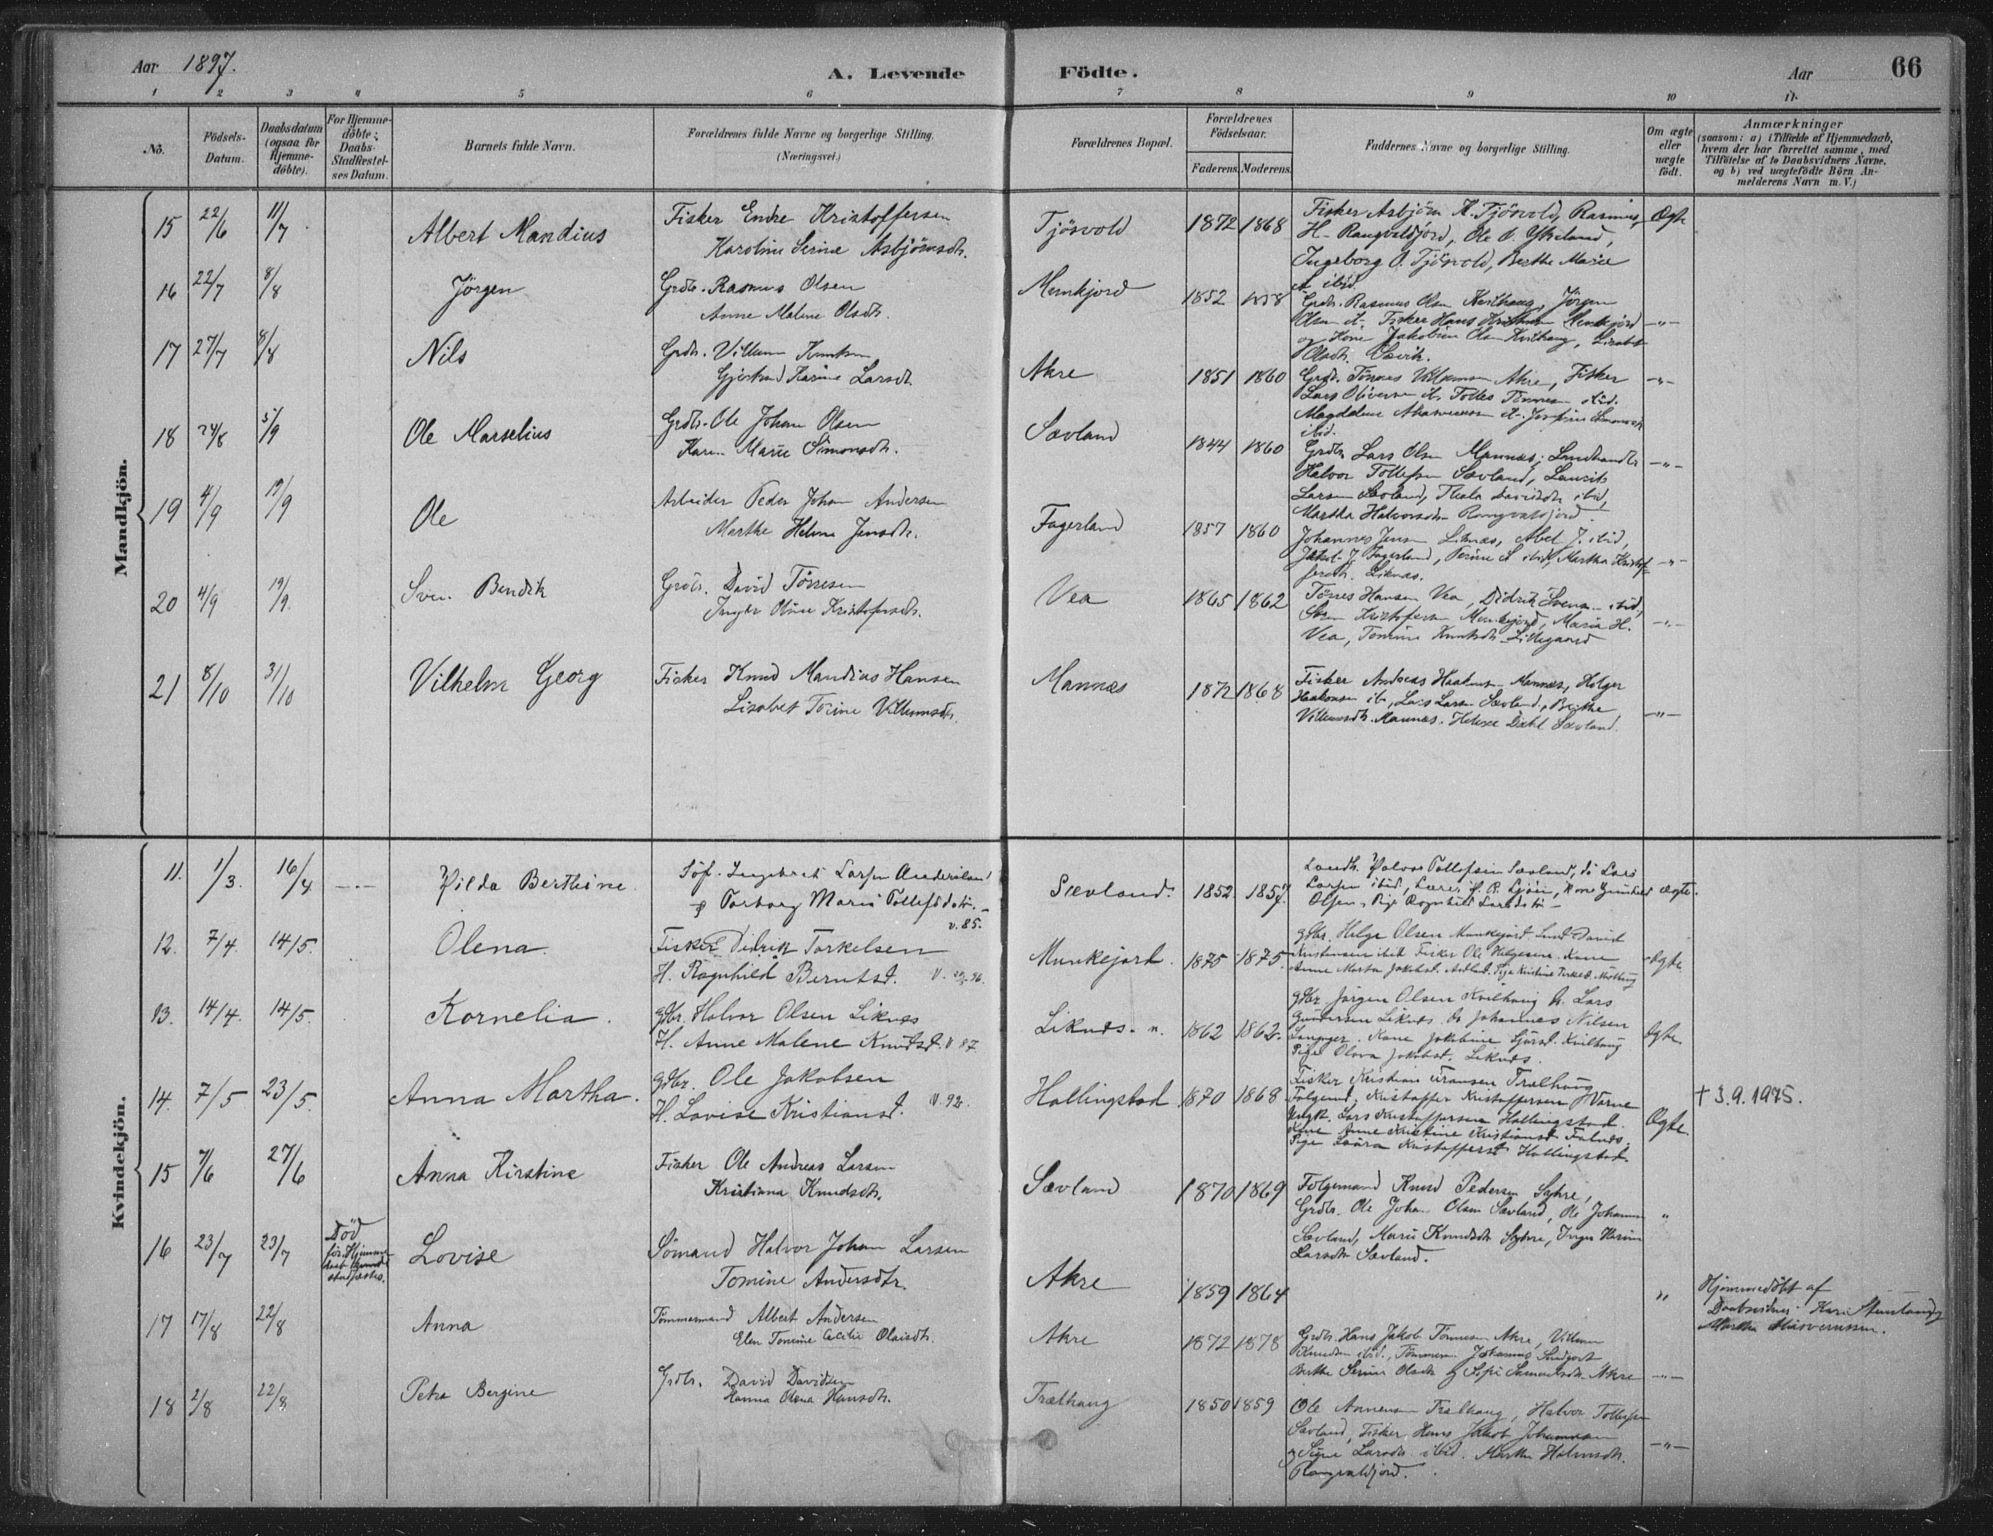 Aar 1897.
A. Levende Födte.
Aar
66
1 2 3 4 5 6 7 8 9 10 11
No.
Födsels-
Datum.
Daabsdatum
(ogsaa for
Hjemme-
döbte).
For Hjemme-
döbte:
Daabs-
Stadfæstel-
ses Datum.
Barnets fulde Navn.
Forældrenes fulde Navne og borgerlige Stilling.
(Næringsvei.)
Forældrenes Bopæl.
Forældrenes
Födselsaar.
Faderens. Moderens.
Faddernes Navne og borgerlige Stilling.
Om ægte
eller
uægte
födt.
Anmærkninger
(saasom: a) i Tilfælde af Hjemmedaab,
hvem der har forrettet samme, med
Tilföielse af to Daabsvidners Navne.
og b) ved uægtefödte Börn An-
melderens Navn m. V.)
Mandkjön.
15 22/6 11/7 Albert Mandius Fisker Endre Kristoffersen
Karoline Serine Asbjörnsdt.
Tjösvold 1872 1868
Fisker Asbjörn K. Tjösvold, Rasmus
H. Rangvaldfjord, Ole O. Ytreland,
Ingeborg O. Tjösvold, Berthe Marie
Ægte
16 22/7 8/8 Jörgen Grdbr. Rasmus Olsen
Anne Malene Olsdt.
Munkjord 1852 1858
Grdbr. Rasmus Olsen Kvilhaug, Jörgen
Olsen Fisker Hans Munkjord
og Kone Jakobine Olsen Kvilhaug, Lisabet
Olsdt. Sævik.
—"—
17 27/7 8/8 Nils Grdbr. Villum Knutsen
Gjertrud Karine Larsdt.
Akre 1851 1860
Grdbr. Tönnes Villumsen Akre, Fisker
Lars Oliversen Tönnesen ibid.
Magdalene
ibid.
—"—
18 24/8 5/9 Ole Marselius Grdbr. Ole Johan Olsen
Karen Marie Simonsdt.
Sævland 1844 1860
Grdbr. Lars Olsen Mannæs, Landhandler
Halvor Tollefsen Sævland, Laurits
Larsen Sævland, Thala Davidsdt. ibid,
Martha Halvorsdt. Rongvalsjord.
—"—
19 4/9 19/9 Ole Arbeider Peder Johan Andersen
Marthe Helene Jensdt.
Fagerland 1857 1860
Johannes Jensen Liknæs, Abel J. ibid,
Jakob J. Fagerland, ibid, Martha Kristof-
fersdt. Liknæs.
—"—
20 4/9 19/9 Sven Bendik Grdbr. David Törresen
Inger Oline Kristofersdt.
Vea 1865 1862
Törres Hansen Vea, Didrik Svens. ibid,
Kristofersen Munkejord, Maria H.
Vea, Tomine Knutsdt. Lillegaard
—"—
21 8/10 31/10 Vilhelm Georg Fisker Knud Mandius Hansen
Lisabet Torine Villumsdt.
Mannæs 1872 1868
Fisker Andreas Haakons. Mannæs, Holger
Haakonsen ib., Lars Larsen Sævland, Berthe
Villumsdt. Mannæs. Helene Dahl Sævland.
—"—
Kvindekjön.
11. 1/3. 16/4 —"— Hilda Berthine. Söf. Ingebret Larsen
& Torborg Marie Tollefsdatr. —
v. 85.
Sævland. 1852. 1857.
Landh. Halvor Tollefsen Sævland, do Lars
Larsen ibid, Lærer Kone Gunhild
Olsen, Pige Ragnhild Larsdatr —
ægte.
12. 7/4 14/5. Olena. Fisker Didrik Torkelsen
H. Ragnhild Berntsd. V. 96.
Munkejord. 1875 1875.
gdbr. Helge Olsen Munkejord. David
Kristensen ibid Fisker Ole Helgesen. Kone
Anne Marta Jakobsd. Pige Kristine Torkelsd.
Ægte
13. 14/4. 14/5. Kornelia. gdbr. Halvor Olsen Liknes
H. Anne Malene Knutsd. V. 87.
Liknes. n. 1862 1862.
gdbr Jörgen Olsen Kvilhaug Lars
Gundersen Liknes Johannes Nilsen
Kone Jakobine Kvilhaug
Pige Olava Jakobsd. Liknes.
Ægte.
14. 7/5 23/5. Anna Martha. gdbr. Ole Jakobsen
H. Lovise Kristiansd. V. 92.
Hallingstad. 1870 1868
Fisker Kristian Fransen Trælhaug
Kristoffer Kristoffersen Varne
Ungk. Lars Kristoffersen Hallingstad.
Kone Anne Kristine Kristiansd. Falnes.
Pige Laura Kristoffersd. Hallingstad.
Ægte.
† 3.9.1975.
15 7/6 27/6 Anna Kirstine Fisker Ole Andreas Larsen
Kristiana Knudsdt.
Sævland 1870 1869
Folgemand Knud Pedersen Syhre,
Grdbr. Ole Johan Olsen Sævland, Ole Johannes
Sævland, Marie Knudsdt. Syhre, Inger Karine
Larsdt. Sævland.
"
16 23/7 23/7 Död
för Hjemme-
daab kunde
stadfæstes.
Lovise Sömand Halvor Johan Larsen
Tomine Andersdtr.
Akre 1859 1864
"
Hjemmedöbt af
Daabsvidner: Kari
Martha Aasverussen.
17 17/8 22/8 Anna Tömmermand Albert Andersen
Elen Tomine Cecilie Olaisdt.
Akre 1872 1878
Grdbr. Hans Jakob Tönnesen Akre, Villum
Knudsen ibid., Tömmerm. Johannes
Berthe Serine Olsdt. og Sofie Samuelsdt. Akre
—"—
18 2/8 22/8 Petra Bergine Grdbr. David Davidsen
Hanna Olena Hansdt.
Trælhaug 1850 1859
Ole Annensen Trælhaug, Halvor Tollefsen
Sævland, Fisker Hans Jakob Johannesen
og Signe Larsdt. ibid. Marthe Halvorsdt.
Rongvaldjord.
—"—